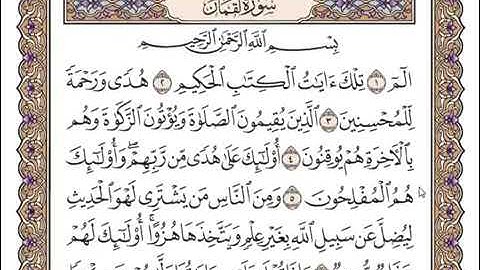 سُورَةُ لُقْمَانَ
بِسْمِ ٱللَّهِ ٱلرَّحْمَٰنِ ٱلرَّحِيمِ
الٓمٓ ١ تِلْكَ ءَايَٰتُ ٱلْكِتَٰبِ ٱلْحَكِيمِ ٢ هُدًى وَرَحْمَةً
لِّلْمُحْسِنِينَ ٣ ٱلَّذِينَ يُقِيمُونَ ٱلصَّلَوٰةَ وَيُؤْتُونَ ٱلزَّكَوٰةَ وَهُم
بِٱلْأَخِرَةِ هُمْ يُوقِنُونَ ٤ أُوْلَٰٓئِكَ عَلَىٰ هُدًى مِّن رَّبِّهِمْ ۖ وَأُوْلَٰٓئِكَ
هُمُ ٱلْمُفْلِحُونَ ٥ وَمِنَ ٱلنَّاسِ مَن يَشْتَرِى لَهْوَ ٱلْحَدِيثِ
لِيُضِلَّ عَن سَبِيلِ ٱللَّهِ بِغَيْرِ عِلْمٍ وَيَتَّخِذَهَا هُزُوًا ۚ أُوْلَٰٓئِكَ لَهُمْ